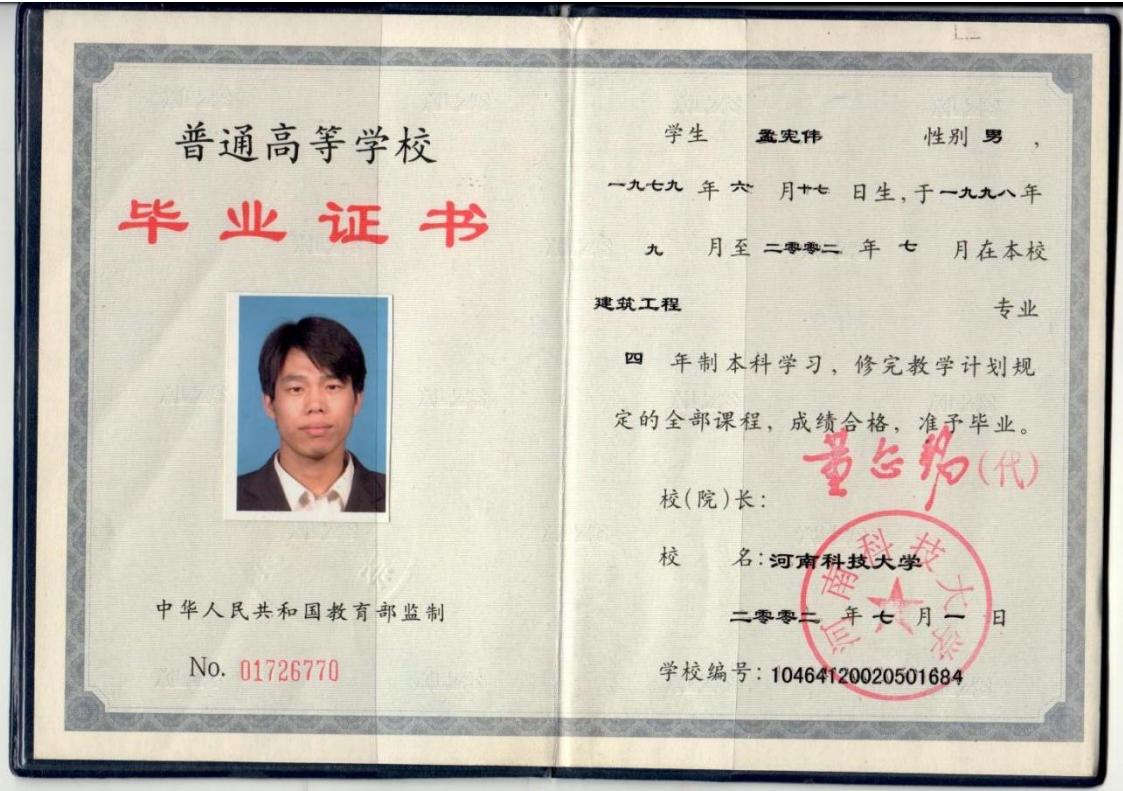 普通高等学校
毕业证书
中华人民共和国教育部监制
No. 01726770
学生 孟宪伟 性别 男，
一九七九 年 六 月 十七 日生，于 一九九八 年
九 月至 二零零二 年 七 月在本校
建筑工程 专业
四 年制本科学习，修完教学计划规
定的全部课程，成绩合格，准予毕业。
(代)
校(院)长：
校 名：河南科技大学
二零零二 年 七 月 一 日
学校编号：10464120020501684
河南科技大学